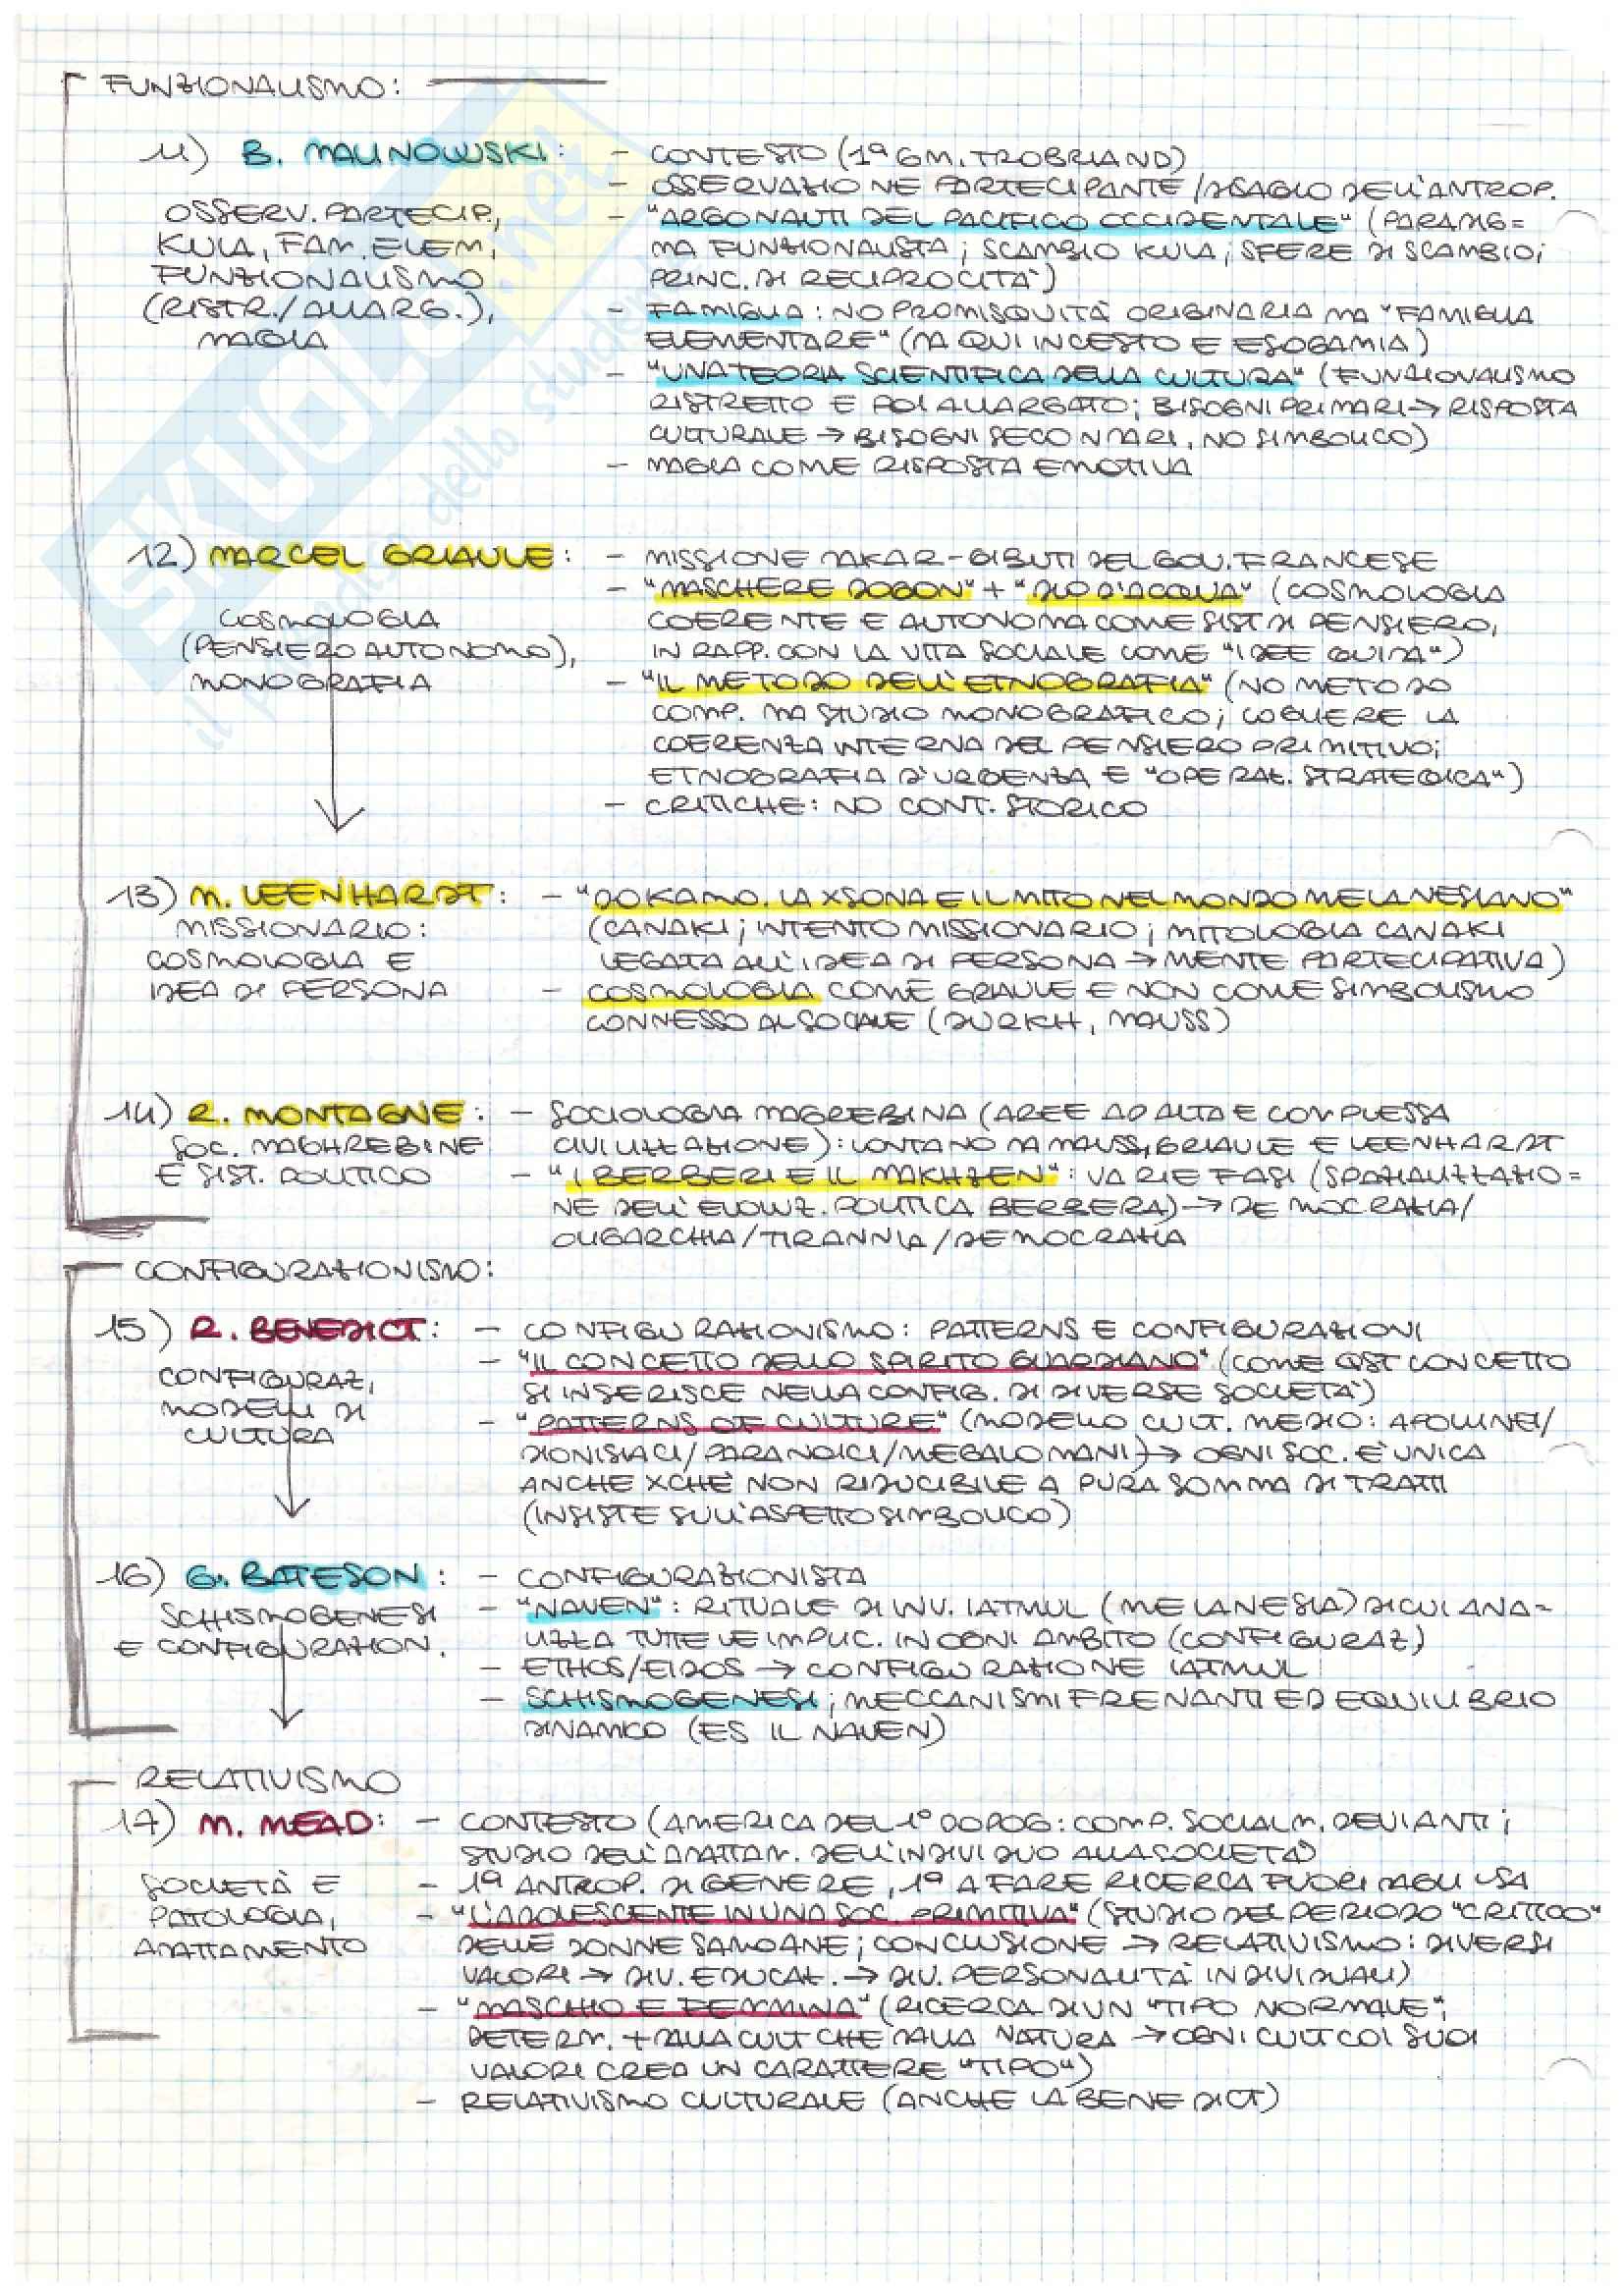 FUNZIONALISMO:
11) B. MALINOWSKI:
OSSERV. PARTECIP.,
KULA, FAM. ELEM,
FUNZIONALISMO
(RISTR./ALLARG.),
MAGIA
- CONTESTO (1ª GM, TROBRIAND)
- OSSERVAZIONE PARTECIPANTE / DISAGIO DELL'ANTROP.
- "ARGONAUTI DEL PACIFICO OCCIDENTALE" (PARADIG=
MA FUNZIONALISTA; SCAMBIO KULA; SFERE DI SCAMBIO;
PRINC. DI RECIPROCITÀ)
- FAMIGLIA: NO PROMISQUITÀ ORIGINARIA MA "FAMIGLIA
ELEMENTARE" (DA QUI INCESTO E ESOGAMIA)
- "UNA TEORIA SCIENTIFICA DELLA CULTURA" (FUNZIONALISMO
RISTRETTO E POI ALLARGATO; BISOGNI PRIMARI → RISPOSTA
CULTURALE → BISOGNI SECONDARI, NO SIMBOLICO)
- MAGIA COME RISPOSTA EMOTIVA
12) MARCEL GRIAULE:
COSMOLOGIA
(PENSIERO AUTONOMO),
MONOGRAFIA
- MISSIONE DAKAR-GIBUTI DEL GOV. FRANCESE
- "MASCHERE DOGON" + "DIO D'ACQUA" (COSMOLOGIA
COERENTE E AUTONOMA COME SIST. DI PENSIERO,
IN RAPP. CON LA VITA SOCIALE COME "IDEE GUIDA")
- "IL METODO DELL'ETNOGRAFIA" (NO METODO
COMP. MA STUDIO MONOGRAFICO; COGLIERE LA
COERENZA INTERNA DEL PENSIERO PRIMITIVO;
ETNOGRAFIA D'URGENZA E "OPERAZ. STRATEGICA")
- CRITICHE: NO CONT. STORICO
13) M. LEENHARDT:
MISSIONARIO:
COSMOLOGIA E
IDEA DI PERSONA
- "DO KAMO. LA XSONA E IL MITO NEL MONDO MELANESIANO"
(CANAKI; INTENTO MISSIONARIO; MITOLOGIA CANAKI
LEGATA ALL'IDEA DI PERSONA → MENTE PARTECIPATIVA)
- COSMOLOGIA COME GRIAULE E NON COME SIMBOLISMO
CONNESSO AL SOCIALE (DURKH, MAUSS)
14) R. MONTAGNE:
SOC. MAGHREBINE
E SIST. POLITICO
- SOCIOLOGIA MAGREBINA (AREE AD ALTA E COMPLESSA
CIVILIZZAZIONE): LONTANO DA MAUSS, GRIAULE E LEENHARDT
- "I BERBERI E IL MAKHZEN": VARIE FASI (SPAZIALIZZAZIO=
NE DELL'EVOLUZ. POLITICA BERBERA) → DEMOCRAZIA/
OLIGARCHIA/TIRANNIA/DEMOCRAZIA
CONFIGURAZIONISMO:
15) R. BENEDICT:
CONFIGURAZ,
MODELLI DI
CULTURA
- CONFIGURAZIONISMO: PATTERNS E CONFIGURAZIONI
- "IL CONCETTO DELLO SPIRITO GUARDIANO" (COME QST CONCETTO
SI INSERISCE NELLA CONFIG. DI DIVERSE SOCIETÀ)
- "PATTERNS OF CULTURE" (MODELLO CULT. MEDIO: APOLLINEI/
DIONISIACI/PARANOICI/MEGALOMANI) → OGNI SOC. È UNICA
ANCHE XCHÈ NON RIDUCIBILE A PURA SOMMA DI TRATTI
(INSISTE SULL'ASPETTO SIMBOLICO)
16) G. BATESON:
SCHISMOGENESI
E CONFIGURAZION.
- CONFIGURAZIONISTA
- "NAVEN": RITUALE DI INV. IATMUL (MELANESIA) DI CUI ANA=
LIZZA TUTTE LE IMPLIC. IN OGNI AMBITO (CONFIGURAZ)
- ETHOS/EIDOS → CONFIGURAZIONE IATMUL
- SCHISMOGENESI; MECCANISMI FRENANTI ED EQUILIBRIO
DINAMICO (ES IL NAVEN)
RELATIVISMO
17) M. MEAD:
SOCIETÀ E
PATOLOGIA,
ADATTAMENTO
- CONTESTO (AMERICA DEL 1° DOPOG: COMP. SOCIALM. DEVIANTI;
STUDIO DELL'ADATTAM. DELL'INDIVIDUO ALLA SOCIETÀ)
- 1ª ANTROP. DI GENERE, 1ª A FARE RICERCA FUORI DAGLI USA
- "L'ADOLESCENTE IN UNA SOC. PRIMITIVA" (STUDIO DEL PERIODO "CRITICO"
DELLE DONNE SAMOANE; CONCLUSIONE → RELATIVISMO: DIVERSI
VALORI → DIV. EDUCAZ. → DIV. PERSONALITÀ INDIVIDUALI)
- "MASCHIO E FEMMINA" (RICERCA DI UN "TIPO NORMALE",
DETERM. + DALLA CULT CHE DALLA NATURA → OGNI CULT COI SUOI
VALORI CREA UN CARATTERE "TIPO")
- RELATIVISMO CULTURALE (ANCHE LA BENEDICT)
SKUOLA.net
il paradiso dello studente